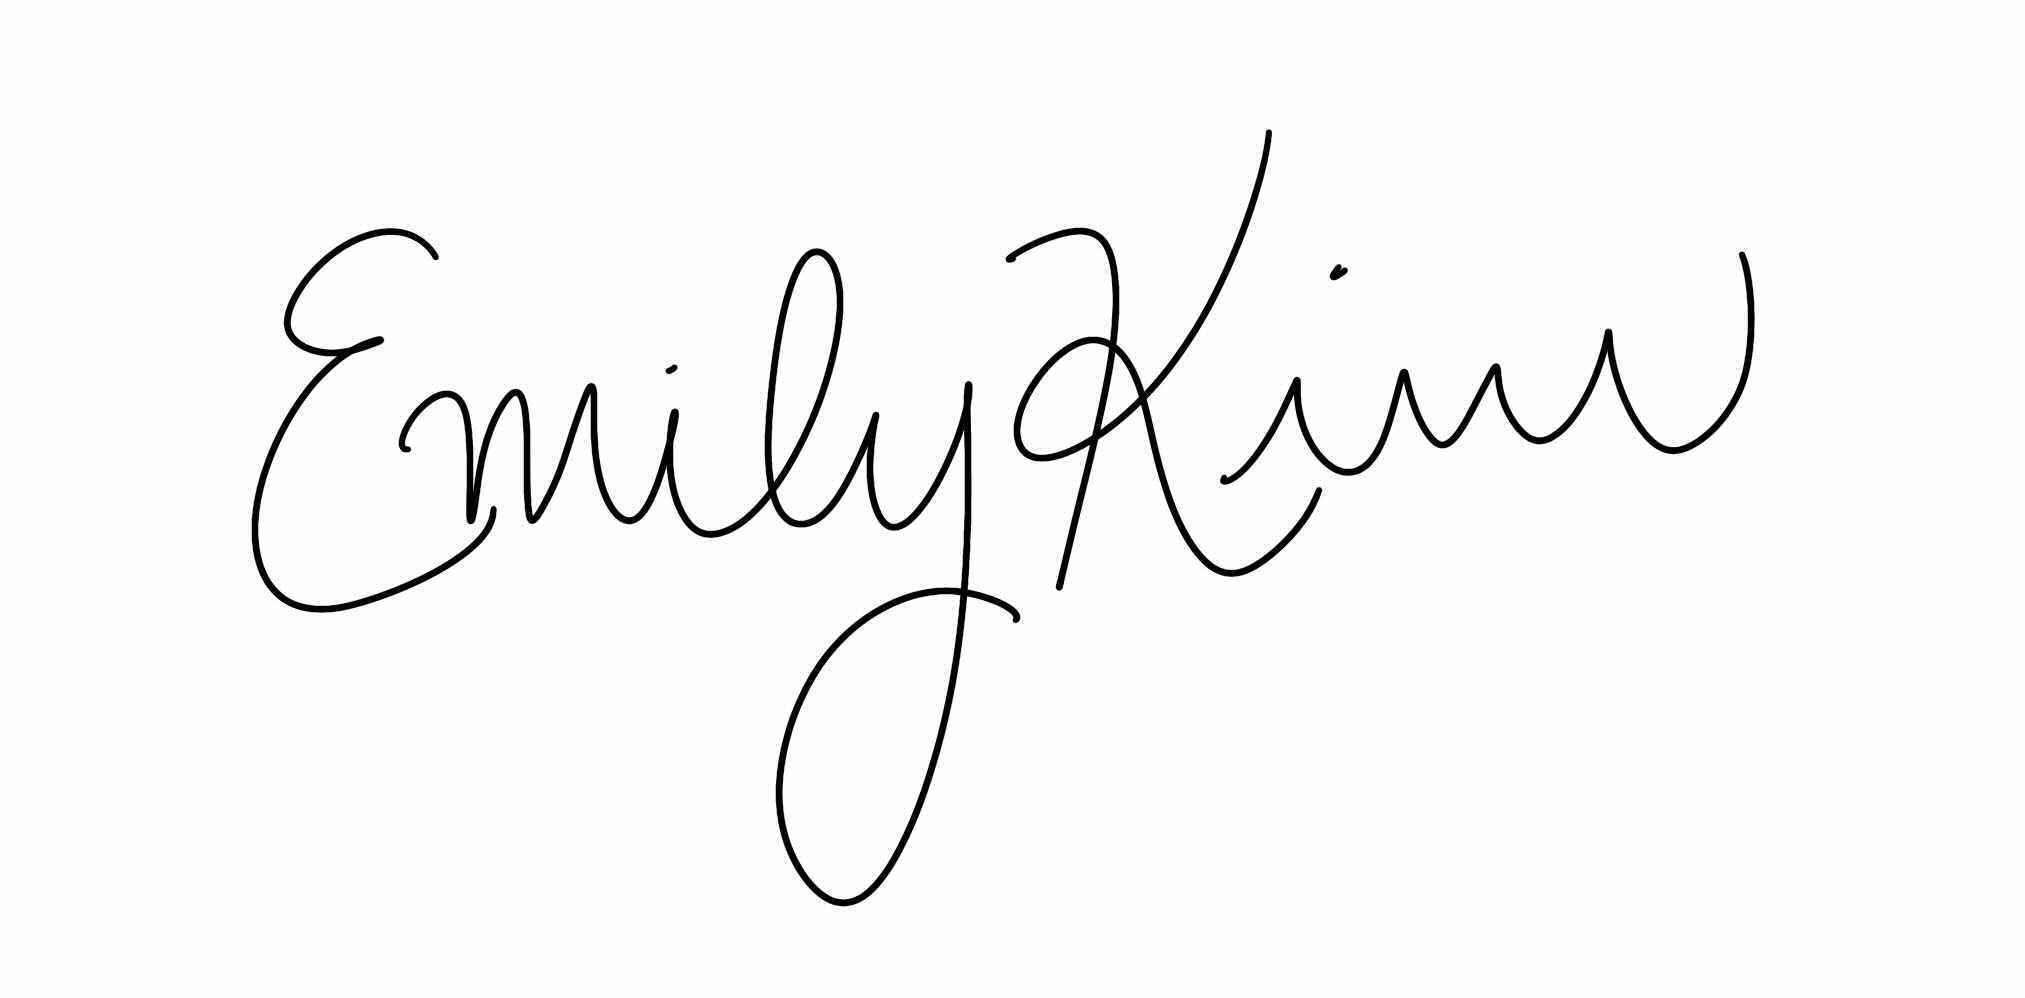 Emily Kim